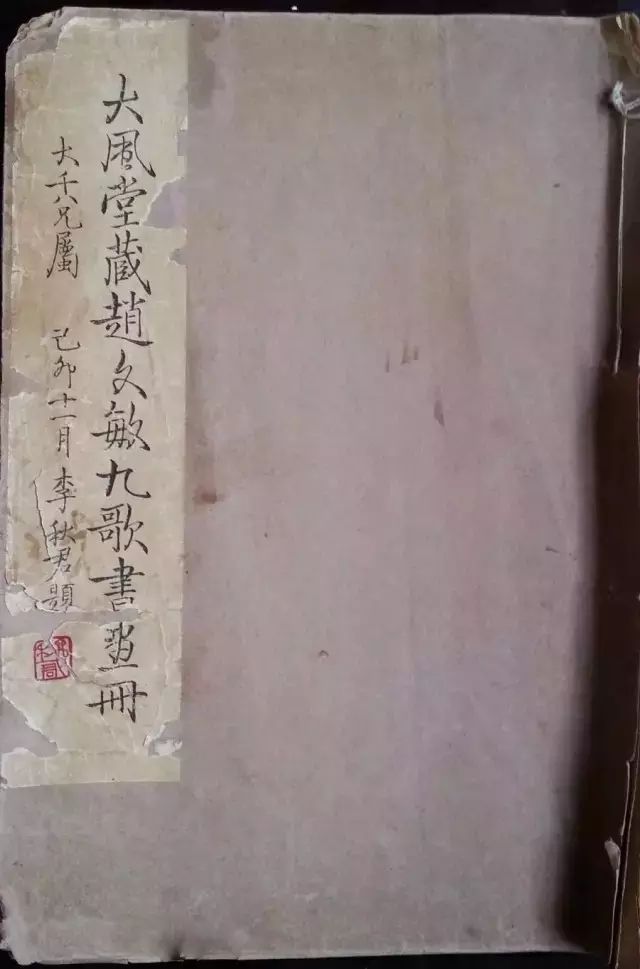 大風堂藏趙文敏九歌書畫冊
大千八兄屬 己卯十一月 李秋君題